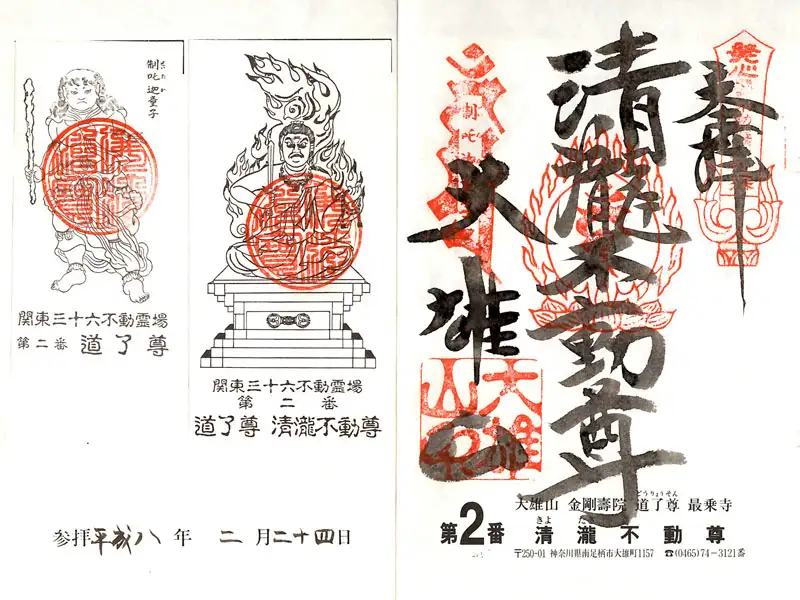 制吒迦童子
せいたか
関東三十六不動霊場
第二番 道了尊
関東三十六不動霊場
第二番
道了尊 清瀧不動尊
参拝平成八年 二月二十四日
奉拝
発心
清瀧不動尊
大雄山
制吒迦
大雄山
どうりょうそん
大雄山 金剛壽院 道了尊 最乗寺
きよ たき
第2番 清瀧不動尊
〒250-01 神奈川県南足柄市大雄町1157 ☎(0465)74-3121番